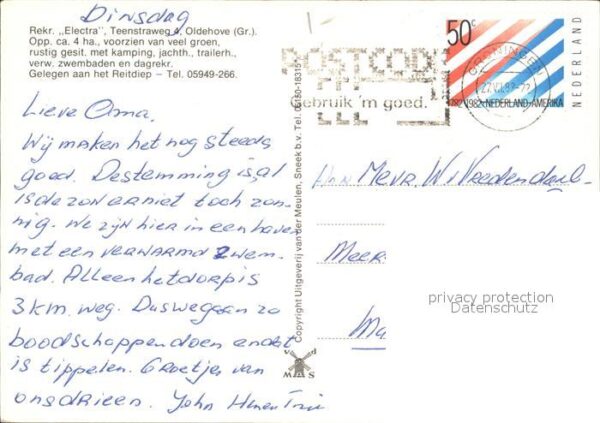 Dinsdag
Rekr. „Electra”, Teenstraweg 4, Oldehove (Gr.).
Opp. ca. 4 ha., voorzien van veel groen,
rustig gesit. met kamping, jachth., trailerh.,
verw. zwembaden en dagrekr.
Gelegen aan het Reitdiep – Tel. 05949-266.
Lieve Oma.
Wij maken het nog steeds
goed. De stemming is, al
is de zon er niet toch zon-
nig. We zijn hier in een haven
met een verwarmd zwem-
bad. Alleen het dorp is
3 km. weg. Dus we gaan zo
boodschappen doen en dat
is tippelen. Groetjes van
ons drieen. John
Copyright Uitgeverij van der Meulen, Sneek b.v. Tel. 05150-18315
MAS
POSTCODE
Gebruik 'm goed.
GRONINGEN
50c
NEDERLAND
1782-1982 • NEDERLAND-AMERIKA
Aan Mevr. W. v. Veedendaal-
Meer
Ma
privacy protection
Datenschutz